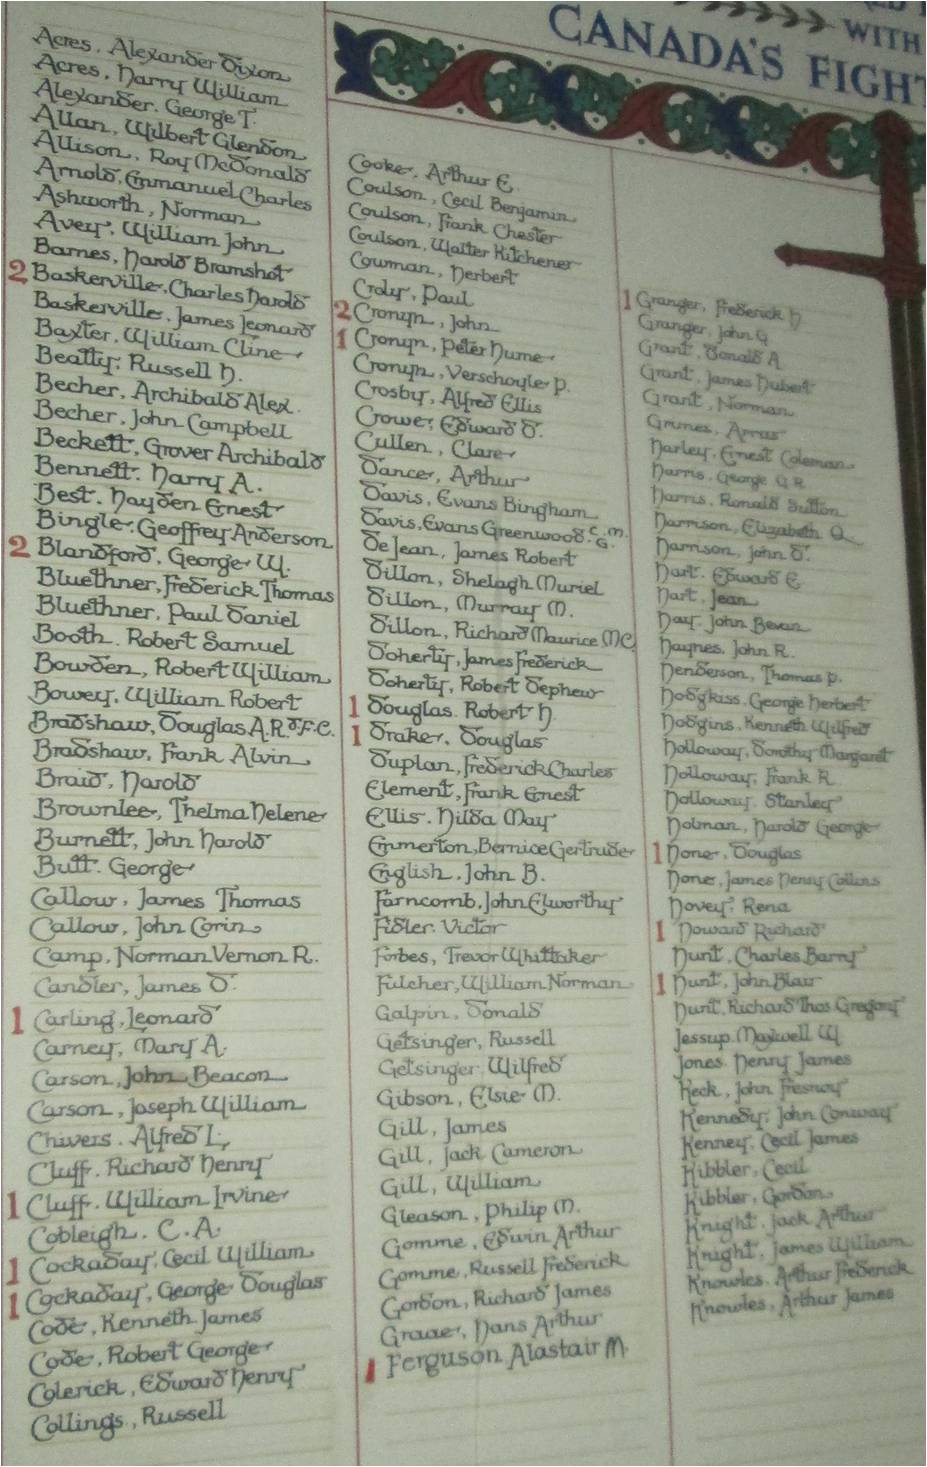 WITH
CANADA'S FIGHT
Acres, Alexander Dixon
Acres, Harry William
Alexander, George T.
Allan, Wilbert Glendon
Allison, Roy McDonald
Arnold, Emmanuel Charles
Ashworth, Norman
Avey, William John
Barnes, Harold Bramshot
2 Baskerville, Charles Harold
Baskerville, James Leonard
Baxter, William Cline
Beatty, Russell H.
Becher, Archibald Alex.
Becher, John Campbell
Beckett, Grover Archibald
Bennett, Harry A.
Best, Hayden Ernest
Bingle, Geoffrey Anderson
2 Blandford, George W.
Bluethner, Frederick Thomas
Bluethner, Paul Daniel
Booth, Robert Samuel
Bowden, Robert William
Bowey, William Robert
Bradshaw, Douglas A.R. D.F.C.
Bradshaw, Frank Alvin
Braid, Harold
Brownlee, Thelma Helene
Burnett, John Harold
Butt, George
Callow, James Thomas
Callow, John Corin
Camp, Norman Vernon R.
Candler, James D.
1 Carling, Leonard
Carney, Mary A.
Carson, John Beacon
Carson, Joseph William
Chivers, Alfred L.
Cluff, Richard Henry
1 Cluff, William Irvine
Cobleigh, C. A.
1 Cockaday, Cecil William
1 Cockaday, George Douglas
Code, Kenneth James
Code, Robert George
Colerick, Edward Henry
Collings, Russell
Cooke, Arthur E.
Coulson, Cecil Benjamin
Coulson, Frank Chester
Coulson, Walter Kitchener
Cowman, Herbert
Croly, Paul
2 Cronyn, John
1 Cronyn, Peter Hume
Cronyn, Verschoyle P.
Crosby, Alfred Ellis
Crowe, Edward D.
Cullen, Clare
Dancer, Arthur
Davis, Evans Bingham
Davis, Evans Greenwood C.M.G.
De Jean, James Robert
Dillon, Shelagh Muriel
Dillon, Murray M.
Dillon, Richard Maurice M.C.
Doherty, James Frederick
Doherty, Robert Dephew
1 Douglas, Robert H.
1 Drake, Douglas
Duplan, Frederick Charles
Element, Frank Ernest
Ellis, Hilda May
Emmerton, Bernice Gertrude
English, John B.
Farncomb, John Elworthy
Fidler, Victor
Forbes, Trevor Whittaker
Fulcher, William Norman
Galpin, Donald
Getsinger, Russell
Getsinger, Wilfred
Gibson, Elsie M.
Gill, James
Gill, Jack Cameron
Gill, William
Gleason, Philip M.
Gomme, Edwin Arthur
Gomme, Russell Frederick
Gordon, Richard James
Graae, Hans Arthur
1 Ferguson Alastair M.
1 Granger, Frederick H
Granger, John G
Grant, Donald A
Grant, James Hubert
Grant, Norman
Grimes,
Harley, Ernest Coleman
Harris, George G R
Harris, Ronald Sutton
Harrison, Elizabeth Q
Harrison, John D.
Hart, Edward E
Hart, Jean
Hay, John Bevan
Haynes, John R.
Henderson, Thomas P.
Hodgkiss, George Herbert
Hodgins, Kenneth Wilfred
Holloway, Dorothy Margaret
Holloway, Frank R.
Holloway, Stanley
Holman, Harold George
1 Hone, Douglas
Hone, James Henry Collins
Hovey, Rena
1 Howard Richard
Hunt, Charles Barry
1 Hunt, John Blair
Hunt, Richard Thos. Gregory
Jessup, Maxwell W
Jones, Henry James
Keck, John Fresnoy
Kennedy, John Conway
Kenney, Cecil James
Kibbler, Cecil
Kibbler, Gordon
Knight, Jack Arthur
Knight, James William
Knowles, Arthur Frederick
Knowles, Arthur James